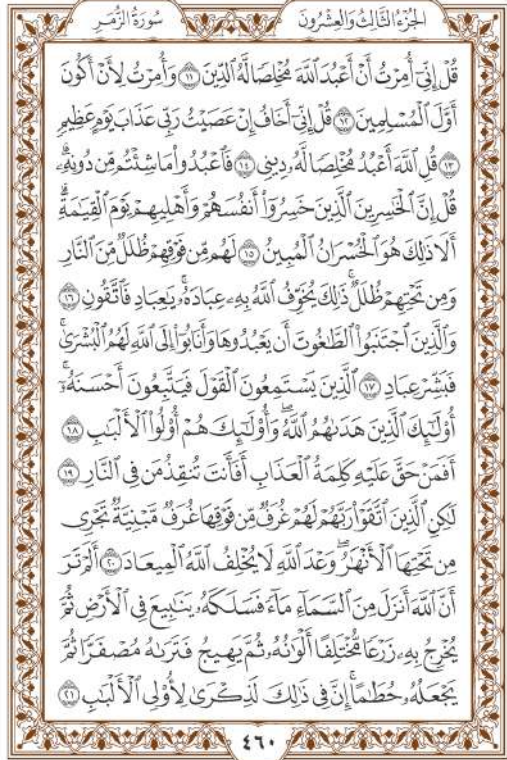 الجزء الثالث والعشرون
سورة الزمر
قُلْ إِنِّيٓ أُمِرْتُ أَنْ أَعْبُدَ ٱللَّهَ مُخْلِصًا لَّهُ ٱلدِّينَ ١١ وَأُمِرْتُ لِأَنْ أَكُونَ
أَوَّلَ ٱلْمُسْلِمِينَ ١٢ قُلْ إِنِّيٓ أَخَافُ إِنْ عَصَيْتُ رَبِّي عَذَابَ يَوْمٍ عَظِيمٍ
١٣ قُلِ ٱللَّهَ أَعْبُدُ مُخْلِصًا لَّهُۥ دِينِي ١٤ فَٱعْبُدُوا۟ مَا شِئْتُم مِّن دُونِهِۦۗ
قُلْ إِنَّ ٱلْخَٰسِرِينَ ٱلَّذِينَ خَسِرُوٓا۟ أَنفُسَهُمْ وَأَهْلِيهِمْ يَوْمَ ٱلْقِيَٰمَةِۗ
أَلَا ذَٰلِكَ هُوَ ٱلْخُسْرَانُ ٱلْمُبِينُ ١٥ لَهُم مِّن فَوْقِهِمْ ظُلَلٌ مِّنَ ٱلنَّارِ
وَمِن تَحْتِهِمْ ظُلَلٌۚ ذَٰلِكَ يُخَوِّفُ ٱللَّهُ بِهِۦ عِبَادَهُۥۚ يَٰعِبَادِ فَٱتَّقُونِ ١٦
وَٱلَّذِينَ ٱجْتَنَبُوا۟ ٱلطَّٰغُوتَ أَن يَعْبُدُوهَا وَأَنَابُوٓا۟ إِلَى ٱللَّهِ لَهُمُ ٱلْبُشْرَىٰۚ
فَبَشِّرْ عِبَادِ ١٧ ٱلَّذِينَ يَسْتَمِعُونَ ٱلْقَوْلَ فَيَتَّبِعُونَ أَحْسَنَهُۥٓۚ
أُو۟لَٰٓئِكَ ٱلَّذِينَ هَدَىٰهُمُ ٱللَّهُۖ وَأُو۟لَٰٓئِكَ هُمْ أُو۟لُوا۟ ٱلْأَلْبَٰبِ ١٨
أَفَمَنْ حَقَّ عَلَيْهِ كَلِمَةُ ٱلْعَذَابِ أَفَأَنتَ تُنقِذُ مَن فِي ٱلنَّارِ ١٩
لَٰكِنِ ٱلَّذِينَ ٱتَّقَوْا۟ رَبَّهُمْ لَهُمْ غُرَفٌ مِّن فَوْقِهَا غُرَفٌ مَّبْنِيَّةٌ تَجْرِي
مِن تَحْتِهَا ٱلْأَنْهَٰرُۖ وَعْدَ ٱللَّهِ لَا يُخْلِفُ ٱللَّهُ ٱلْمِيعَادَ ٢٠ أَلَمْ تَرَ
أَنَّ ٱللَّهَ أَنزَلَ مِنَ ٱلسَّمَآءِ مَآءً فَسَلَكَهُۥ يَنَٰبِيعَ فِي ٱلْأَرْضِ ثُمَّ
يُخْرِجُ بِهِۦ زَرْعًا مُّخْتَلِفًا أَلْوَٰنُهُۥ ثُمَّ يَهِيجُ فَتَرَىٰهُ مُصْفَرًّا ثُمَّ
يَجْعَلُهُۥ حُطَٰمًاۚ إِنَّ فِي ذَٰلِكَ لَذِكْرَىٰ لِأُو۟لِي ٱلْأَلْبَٰبِ ٢١
٤٦٠